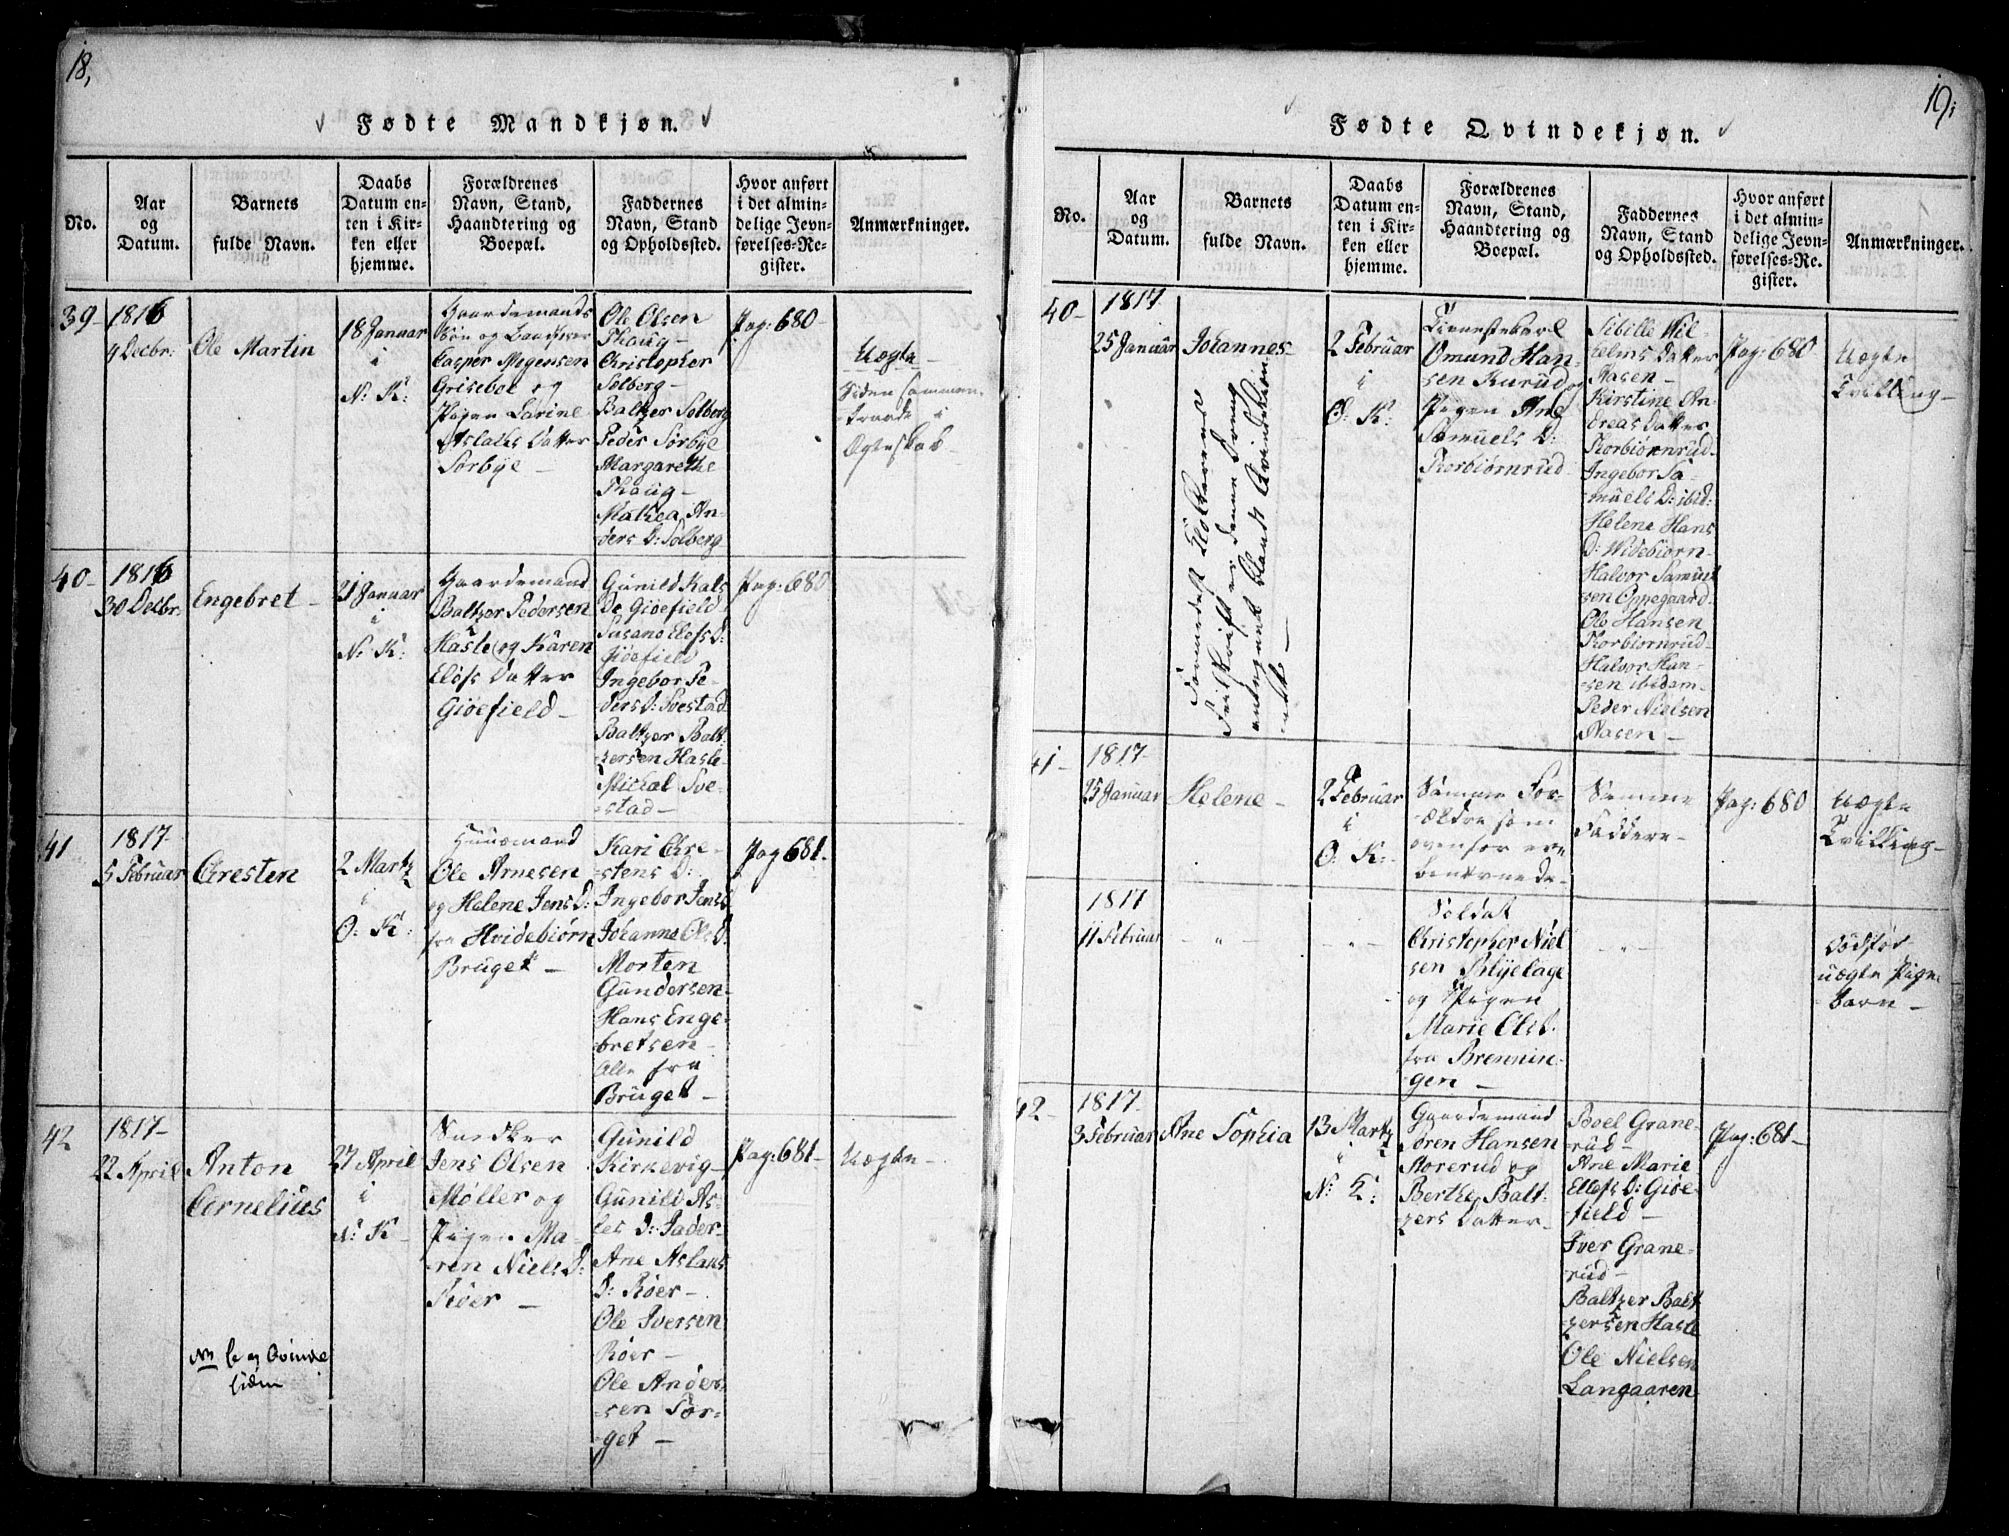 18,
Fødte Mandkjøn.
No.
Aar
og
Datum.
Barnets
fulde Navn.
Daabs
Datum en-
ten i Kir-
ken eller
hjemme.
Forældrenes
Navn, Stand,
Haandtering og
Boepæl.
Faddernes
Navn, Stand
og Opholdssted.
Hvor anført
i det almin-
delige Jevn-
førelses-Re-
gister.
Anmærkninger.
39-
1816
9 Decbr:
Ole Martin
18 Januar
i
N: K:
Gaardemands
Søn og
Casper Mogensen
Griseboe og
Pigen Larine
Aslaks Datter
Sørbye -
Ole Olsen
Thoug-
Christopher
Solberg-
Baltzer Solberg
Peder Sørbye
Margarethe
Thoug-
Mathea An-
ders D: Solberg
Pag: 680-
Uægte -
Siden sammen-
traade i
Egteskab-
40-
1816
30 Decbr:
Engebret -
21 Januar
i
N: K:
Gaardemand
Baltzer Pedersen
Hasle og Karen
Elofs Datter
Giøefield -
Gunild Kals
De Giøefield
Susano Elofs D:
Giøefield
Ingebor Pe-
ders D: Svestad
Baltzer Balt-
zersen Hasle-
Michal Sve-
stad-
Pag: 680
41
1817-
5 Februar
Chresten
2 Martz
i
O: K:
Huusmand
Ole Arnesen
og Helene Jens D:
fra Hvidebiørn
Bruget -
Kari Chre-
stens D:
Ingebor Jens D:
Johanne Ols D:
Morten
Gundersen-
Hans Enge-
bretsen-
Alle fra
Bruget -
Pag 681-
42
1817-
22 April
Anton
Cornelius
27 April
i
N: K-
Snedker
Jens Olsen
Møller og
Pigen Ma-
ren Niels D:
Røer -
Gunild
Kirkevig-
Gunild As-
les D: Fader-
Ane Aslaks
D: Røer -
Ole Iversen
Røer -
Ole Ander-
sen Tor-
get -
Pag: 681-
Uægte -
Qvinde
siden
19;
Fødte Qvindekjøn.
No.
Aar
og
Datum.
Barnets
fulde Navn.
Daabs
Datum en-
ten i Kir-
ken eller
hjemme.
Forældrenes
Navn, Stand,
Haandtering og
Boepæl.
Faddernes
Navn, Stand
og Opholdssted.
Hvor anført
i det almin-
delige Jevn-
førelses-Re-
gister.
Anmærkninger.
40-
1817
25 Januar
Johannes-
Formedelst Klokkerens
Feilskrift er denne Dreng
antegnet blandt Qvindekiøn-
net -
2 Februar
i
O: K:
Tienestekarl
Omund Han-
sen Kurud og
Pigen Ane
Samuels D:
Thorbiørnrud-
Sibille Wil-
helms Datter
Aasen-
Kirstine An-
dreas Datter
Thorbiørnrud-
Ingebor Sa-
muels D: ibid:
Helene Hans
D: Widebiørn-
Halvor Samuel-
sen Oppegaard-
Ole Hansen
Thorbiørnrud-
Halvor Han-
sen ibidem-
Peder Nielsen
Aasen -
Pag: 680
Uægte
Tvilling-
41-
1817-
25 Januar
Helene -
2 Februar
i
O: K:
Samme For-
ældre som
ovenfor ere
benævnede-
Samme
Faddere-
Pag: 680
Uægte
Tvilling-
1817
11 Februar
- " -
- " -
Soldat
Christopher Niel-
sen Blyelage
og Pigen
Marie Ols D:
fra Brennin-
gen -
- " -
Dødfød
uægte Pige-
Barn -
42-
1817-
3 Februar
Ane Sophia
13 Martz
i
N: K:
Gaardemand
Søren Hansen
Storerud og
Berthe Balt-
zers Datter-
Boel Grane-
rud-
Ane Marie
Ellefs D: Giøe-
field-
Iver Grane-
rud-
Baltzer Balt-
zersen Hasle
Ole Nielsen
Langaaren
Pag: 681-